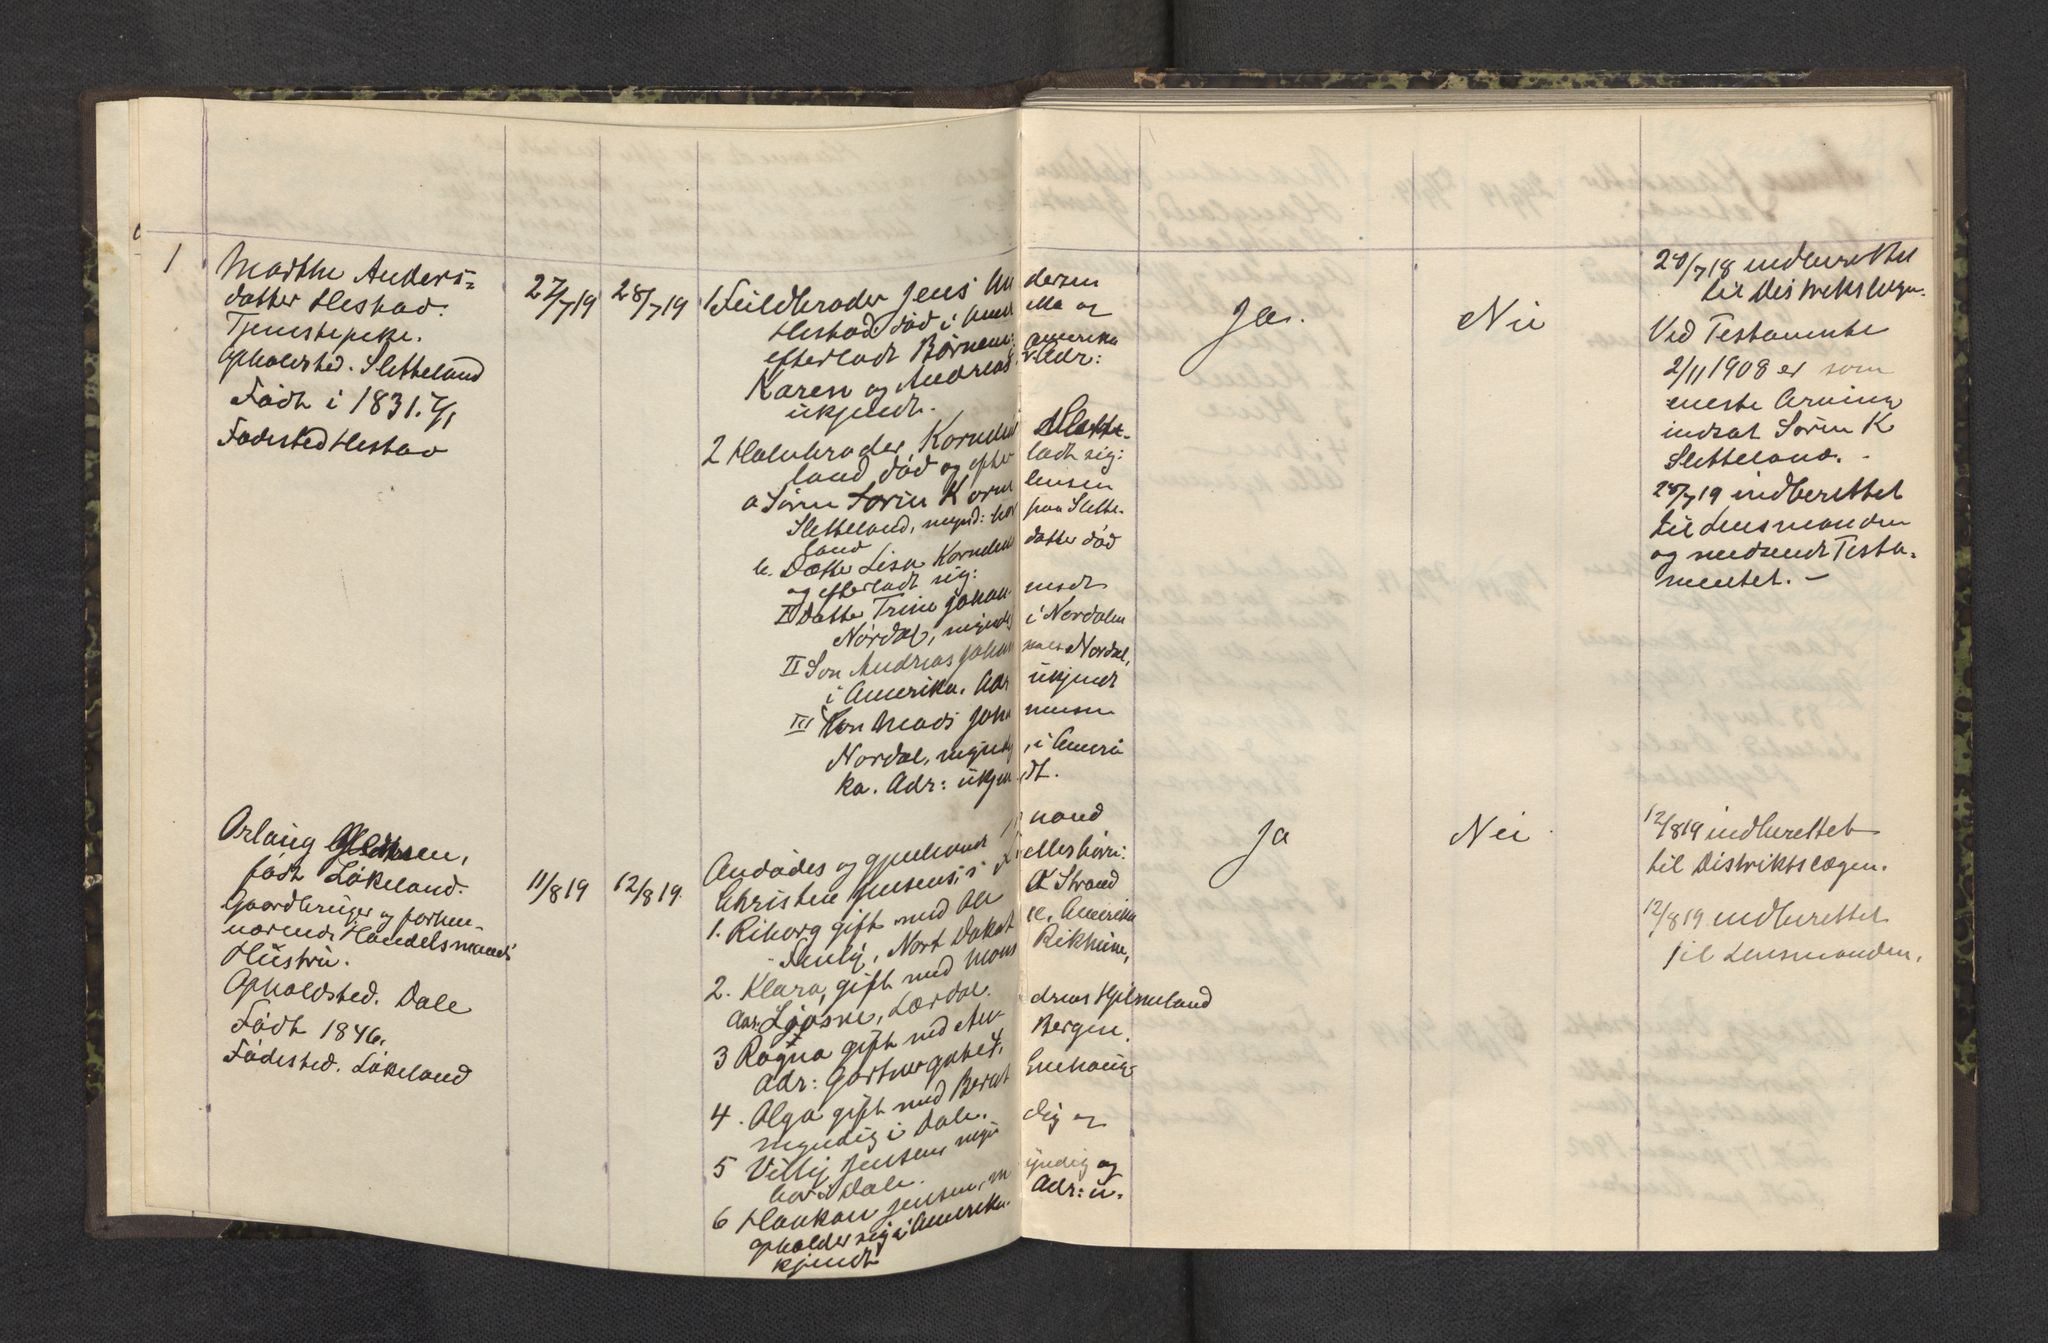 1
Marthe Anders-
datter Hestad.
Tjenestepike.
Opholdsted. Sletteland
Født i 1831. 7/1
Fødested Hestad
27/7 19
28/7 19
1. Fuldbroder Jens An dersen
Hestad død i Amerika og
efterladt Børnene: Amerika
Karen og Andreas. Adr:
ukjendt.
2 Halvbroder Kornelius Slette-
land død og efter ladt sig:
a Søren Sørin K Korne liusen
Sletteland, mynd: bor paa Slette-
land
b. Datter Lisa Kornelius datter død
og efterladt sig:
I Datter Trine Johan nesdt
Nordal, myndig i Nordalen
II Søn Andreas Johan nesen Nordal,
i Amerika. Adr ukjendt
III Søn Mads Joha nnesen
Nordal, myndig, i Ameri
ka. Adr: ukjen dt.
Ja.
Nei
28/7 18 indberettet
til Distriktslægen.
Ved Testamente
2/11 1908 er som
eneste Arving
indsat Sørin K
Sletteland. -
28/7 19 indberettet
til Lensmanden
og medsendt Testa-
mentet. -
født Løkeland.
Gaardbruger og forhen-
værende Handelsmands
Hustru.
Opholdsted. Dale
Født 1846.
Fødested. Løkeland
11/8 19
12/8 19.
Avdødes og gjenlevende mand
Christen Jensens fællesbørn:
1. Riborg gift med Ole K Strand
Nort Dakota, Amerika
2. Klara, gift med Mons Rikheim,
Adr. Ljøsne, Lærdal.
3 Ragna gift med An- dreas Hjelmeland
Adr: Gartnergate 4, Bergen.
4. Olga gift med Bernt Enehaug-
myndig i Dale.
5 Villy Jensen, myn dig og
bor i Dale.
6 Haakon Jensen, m yndig og
opholder sig i Amerika. Adr: u-
kjendt
Ja
Nei
12/8 19 indberettet
til Distriktslægen.
12/8 19 indberettet
til Lensmanden.